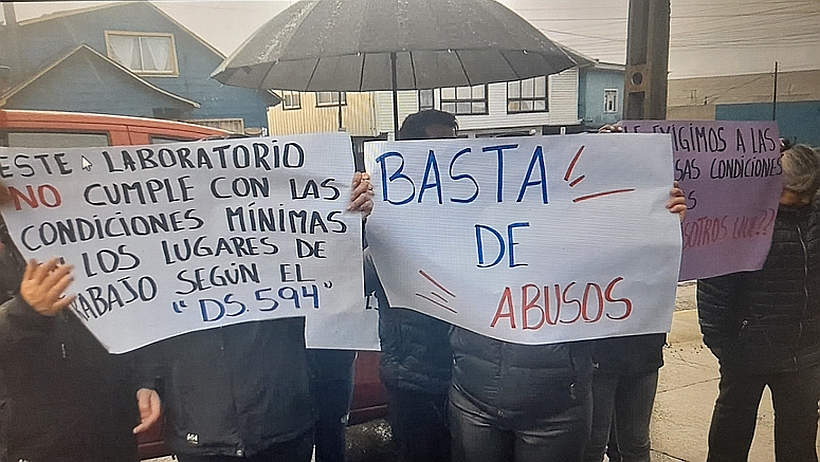 ESTE LABORATORIO
NO CUMPLE CON LAS
CONDICIONES MÍNIMAS
LOS LUGARES DE
TRABAJO SEGÚN EL
"DS.594"
BASTA
DE
ABUSOS
LE EXIGIMOS A LAS
CONDICIONES
QUE??